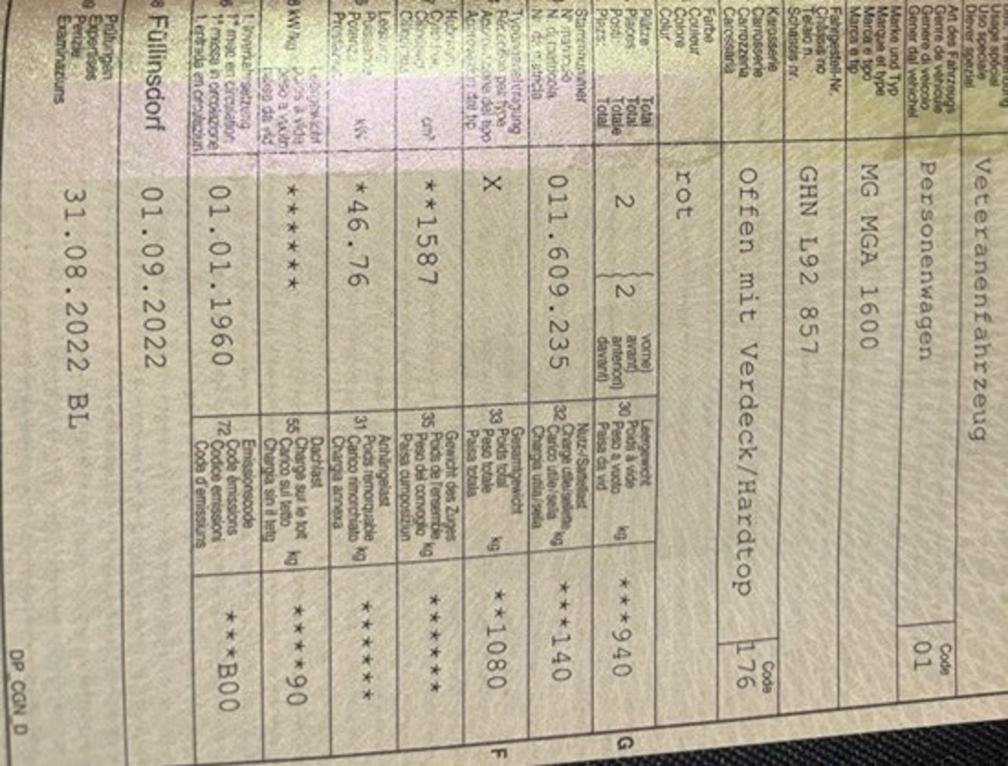 Veteranenfahrzeug
Art des Fahrzeugs
Genre de véhicule
Genere di veicolo
Gener dal vehichel
Personenwagen
Code
01
Marke und Typ
Marque et type
Marca e tipo
Marca e tip
MG MGA 1600
Fahrgestell-Nr.
Châssis no
Telaio n.
Schassis nr.
GHN L92 857
Karosserie
Carrosserie
Carrozzeria
Carossaria
Offen mit Verdeck/Hardtop
Code
176
Farbe
Couleur
Colore
Colur
rot
Plätze Total
Places Total
Posti Totale
Plazs: Total
2
2
vorne)
avant)
anteriori)
davant)
30
Leergewicht
Poids à vide
Peso a vuoto
Paisa da vid
kg
***940
G
Stammnummer
N° matricule
N. di matricola
011.609.235
32
Nutz-/Sattellast
Charge utile/sellette
Carico utile/sella
Chargia utila/sella
kg
***140
Typengenehmigung
Réception par type
X
33
Gesamtgewicht
Poids total
Peso totale
Paisa totala
kg
**1080
F
cm³
**1587
35
Gewicht des Zuges
Poids de l'ensemble
Peso del convoglio
Paisa cumposiziun
kg
******
kW
*46.76
31
Anhängelast
Poids remorquable
Carico rimorchiato
Chargia annexa
kg
******
kW/kg
******
55
Dachlast
Charge sur le toit
Carico sul tetto
Chargia sin il tetg
kg
****90
1. Inverkehrsetzung
1re mise en circulation
1a messa in circolazione
1. entrada en circulaziun
01.01.1960
72
Emissionscode
Code émissions
Codice emissioni
Code d'emissiuns
***B00
Füllinsdorf
01.09.2022
Prüfungen
Expertises
Perizie
Examinaziuns
31.08.2022 BL
DP_CGN_D